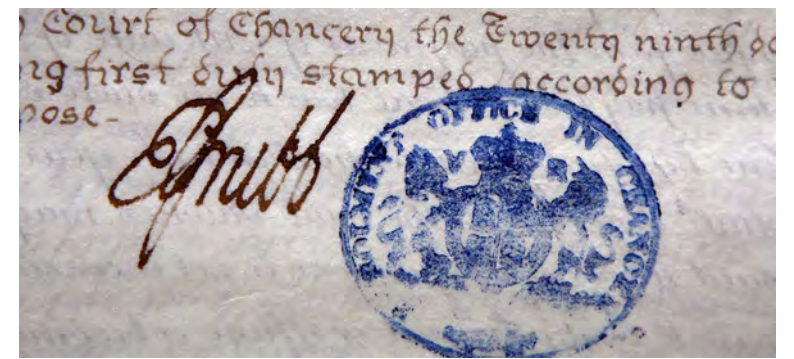 Court of Chancery the Twenty ninth
first duly stamped according to
pose -
OFFICE IN CHANCY
V R